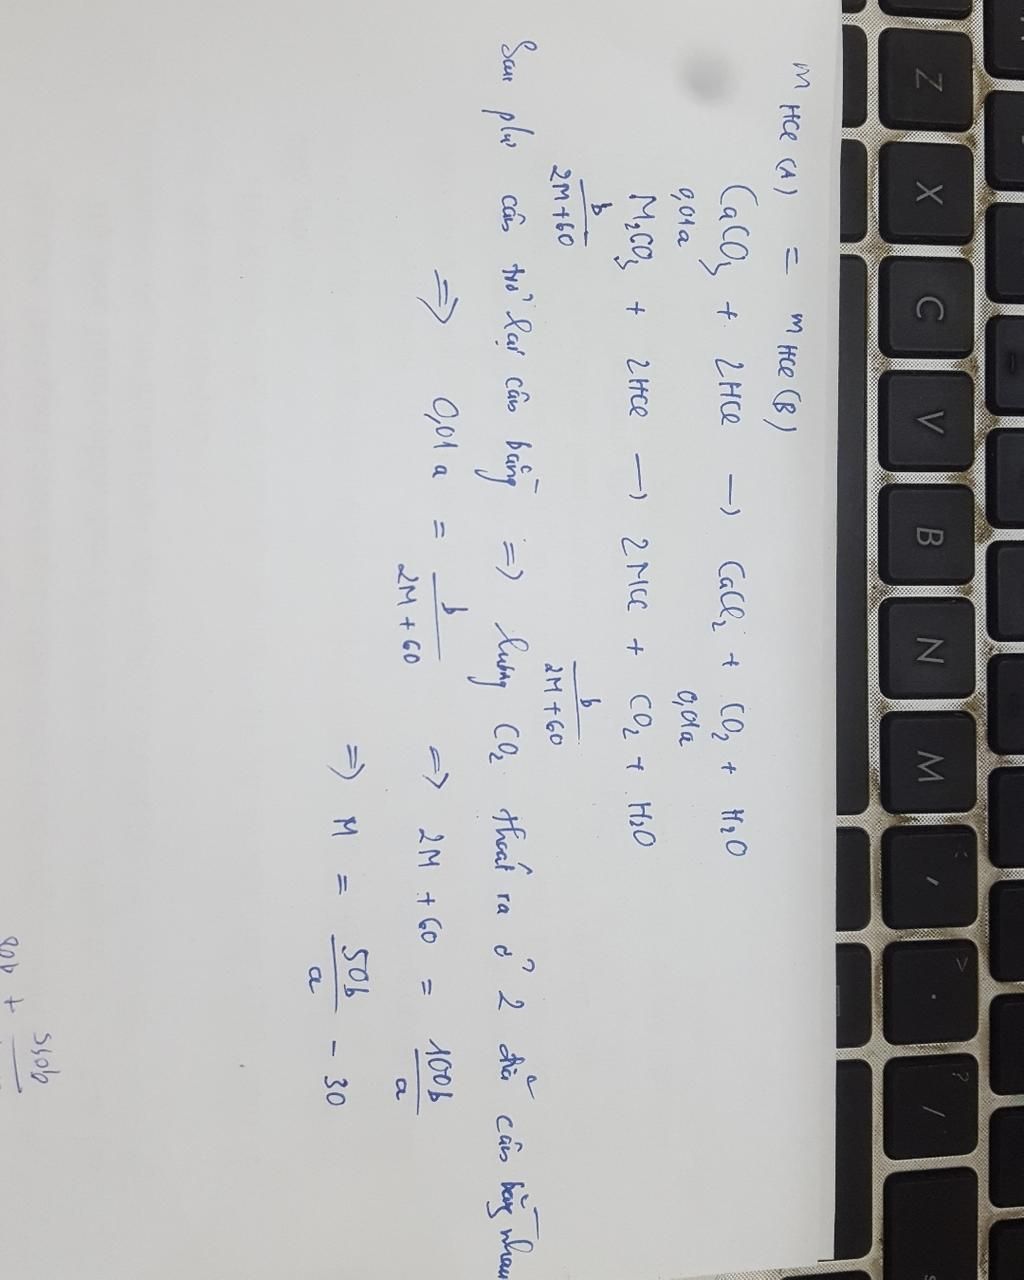 m HCl (A) = m HCl (B)
CaCO3 + 2HCl → CaCl2 + CO2 + H2O
0,01a 0,01a
M2CO3 + 2HCl → 2MCl + CO2 + H2O
b/2M+60 b/2M+60
Sau pứ cân trở lại cân bằng => lượng CO2 thoát ra ở 2 đĩa cân bằng nhau
=> 0,01a = b/2M+60 => 2M + 60 = 100b/a
=> M = 50b/a - 30
Z X C V B N M , > . ? /